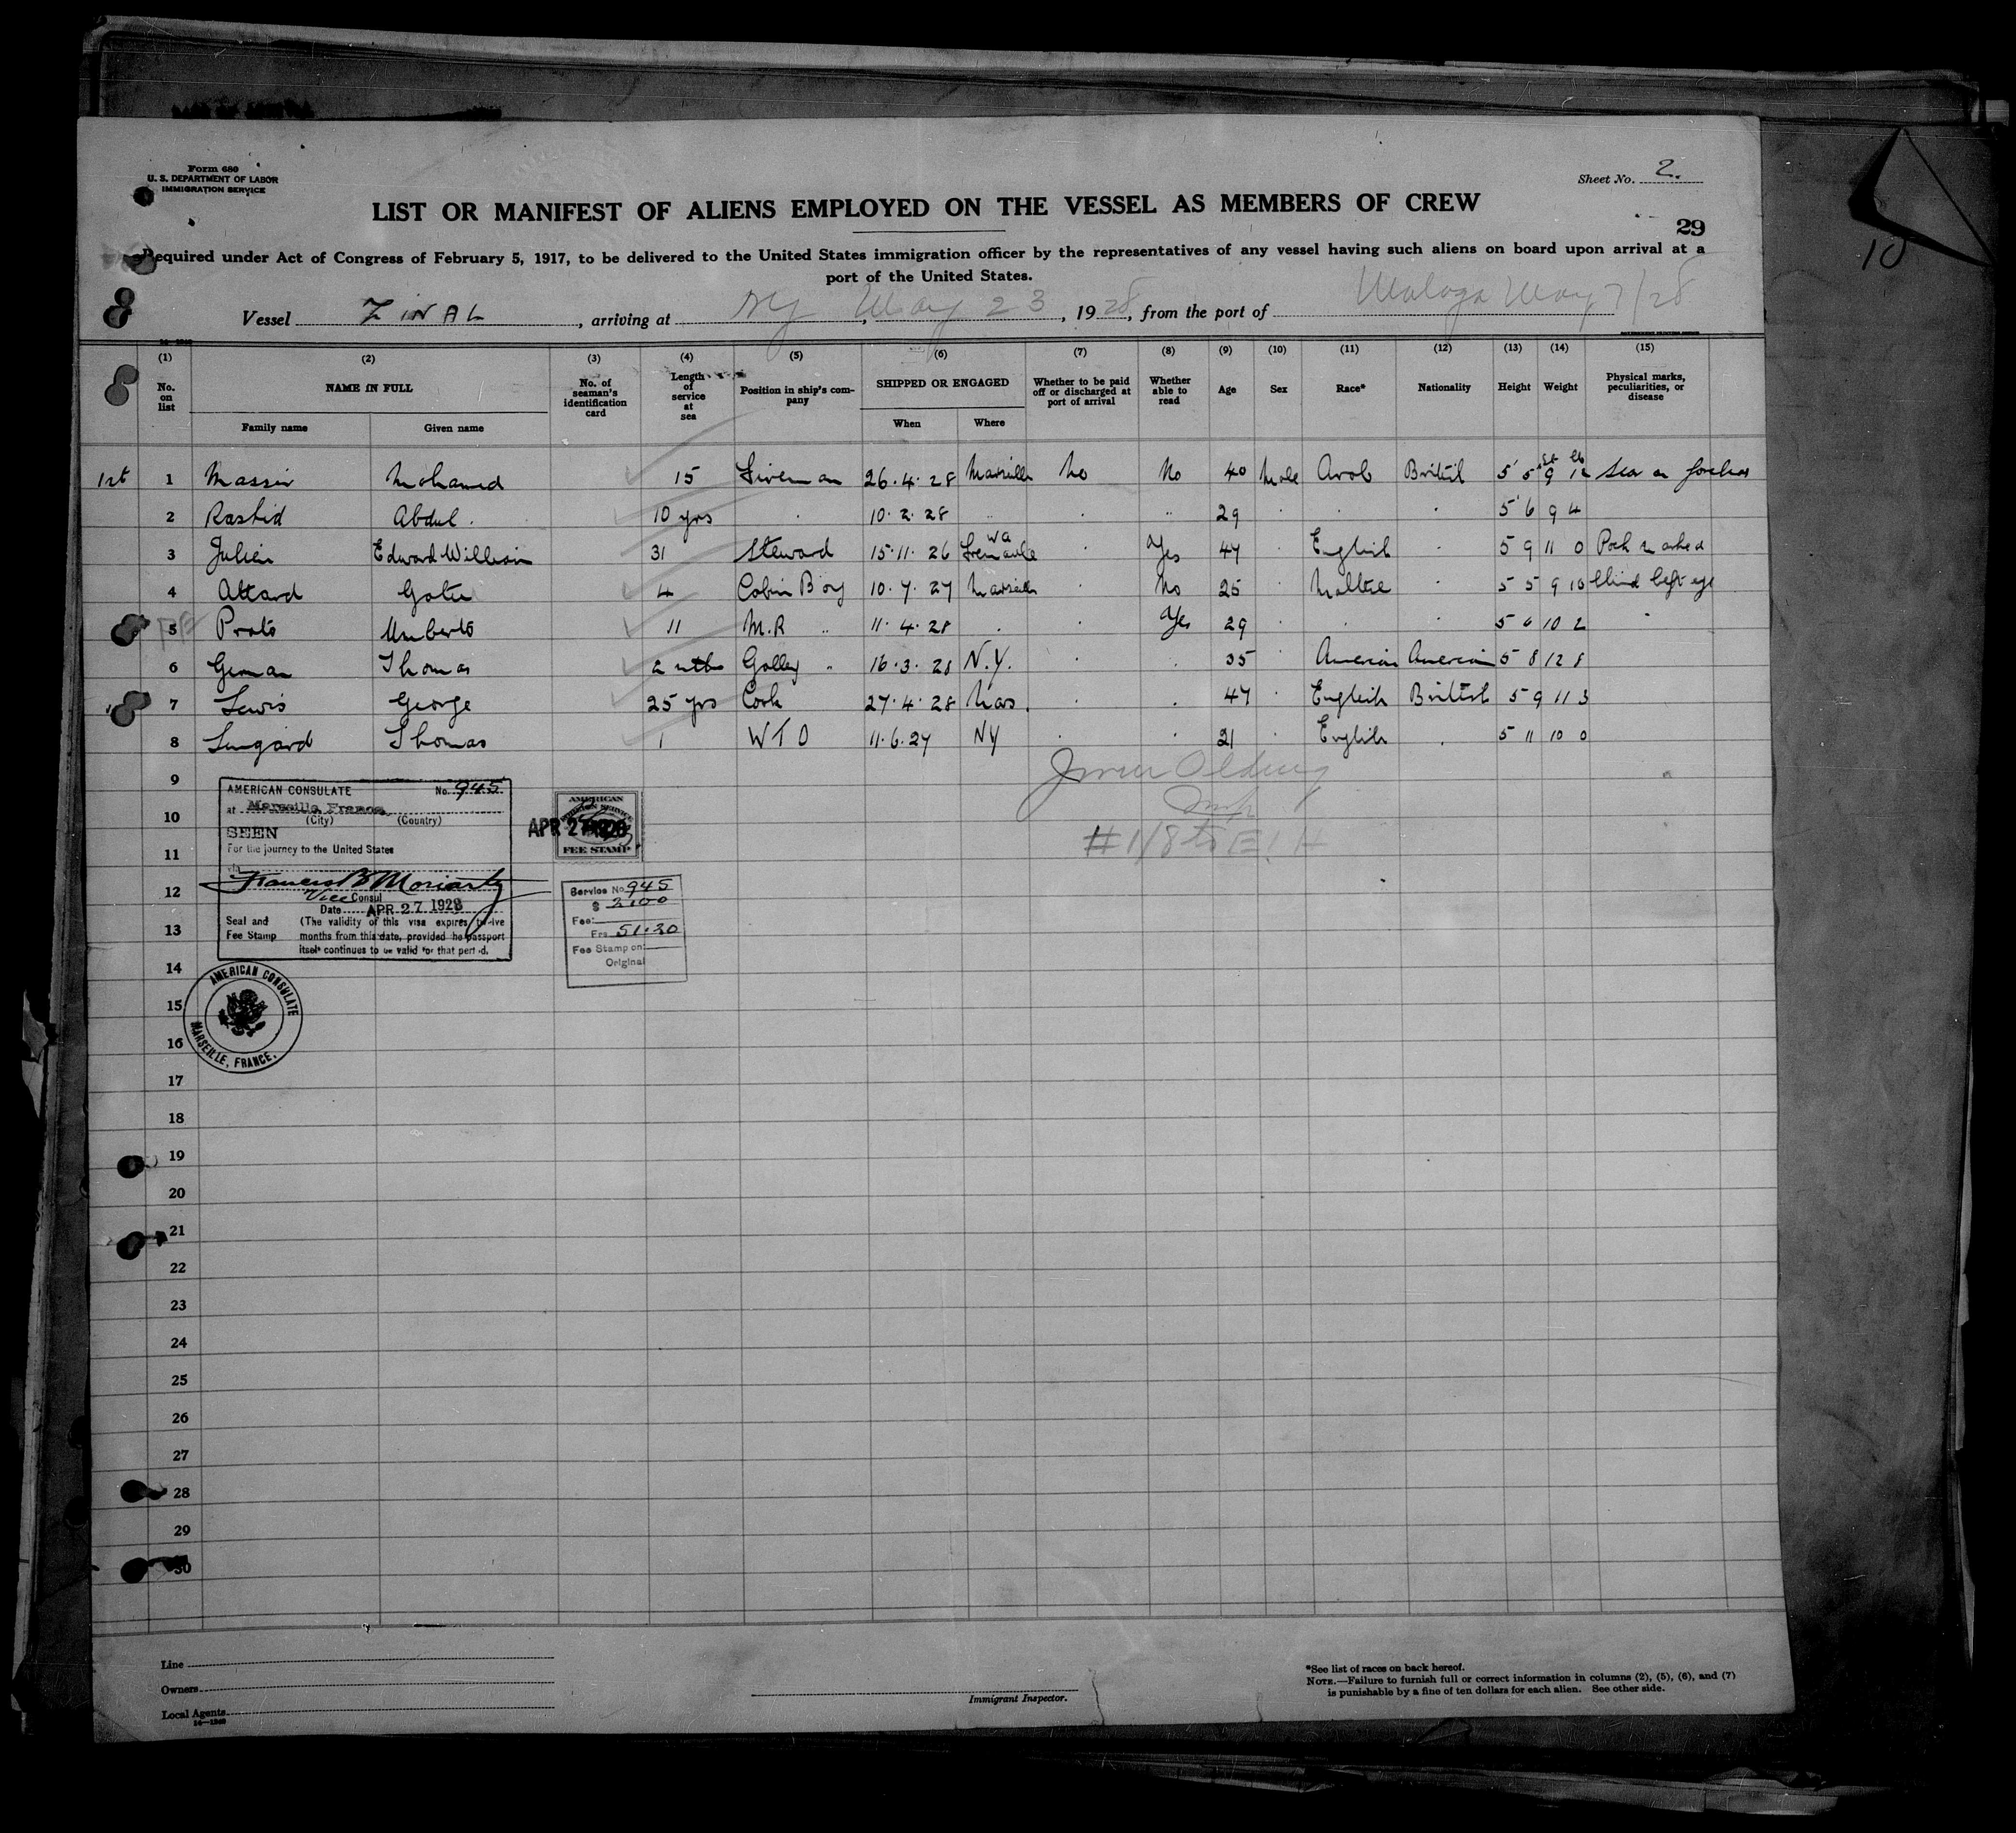 Form 680
U. S. DEPARTMENT OF LABOR
IMMIGRATION SERVICE
Sheet No. 2.
LIST OR MANIFEST OF ALIENS EMPLOYED ON THE VESSEL AS MEMBERS OF CREW
29
10
Required under Act of Congress of February 5, 1917, to be delivered to the United States immigration officer by the representatives of any vessel having such aliens on board upon arrival at a
port of the United States.
Vessel ZINAL, arriving at NY, May 23, 1928, from the port of Malaga May 7/28
(1) (2) (3) (4) (5) (6) (7) (8) (9) (10) (11) (12) (13) (14) (15)
No. on list NAME IN FULL Family name Given name No. of seaman's identification card Length of service at sea Position in ship's company SHIPPED OR ENGAGED When Where Whether to be paid off or discharged at port of arrival Whether able to read Age Sex Race* Nationality Height Weight Physical marks, peculiarities, or disease
1st 1 Massir Mohamed 15 Fireman 26.4.28 Marseille No No 40 Male Arab British 5' 5" 9 12 Scar on forehead
2 Rashid Abdul. 10 yrs 10.2.28 29 5 6 9 4
3 Julien Edward William 31 Steward 15.11.26 Fremantle WA Yes 47 English 5 9 11 0 Pock marked
4 Attard 4 Cabin Boy 10.7.27 Marseille No 25 Maltese 5 5 9 10 blind left eye
5 Prato Umberto 11 M.R " 11.4.28 Yes 29 5 6 10 2
6 Geman Thomas 2 mths Galley " 16.3.28 N.Y. 35 American American 5 8 12 8
7 Lewis George 25 yrs Cook 27.4.28 Mars. 47 English British 5 9 11 3
8 Lingard Thomas 1 W T O 11.6.27 NY 21 English 5 11 10 0
9
10
11
12
13
14
15
16
17
18
19
20
21
22
23
24
25
26
27
28
29
30
AMERICAN CONSULATE No. 945
at Marseille, France.
(City) (Country)
SEEN
For the journey to the United States
via
Francis B Moriarty
Vice Consul
Date APR 27 1928
Seal and Fee Stamp
(The validity of this visa expires twelve
months from this date, provided the passport
itself continues to be valid for that period.
AMERICAN CONSULATE
MARSEILLE, FRANCE.
AMERICAN
FOREIGN SERVICE
APR 27 1928
FEE STAMP
Service No. 945
$ 2.00
Fee:
Frs 51.20
Fee Stamp on
Original
Line
Owners
Local Agents
Immigrant Inspector.
*See list of races on back hereof.
NOTE.—Failure to furnish full or correct information in columns (2), (5), (6), and (7)
is punishable by a fine of ten dollars for each alien. See other side.